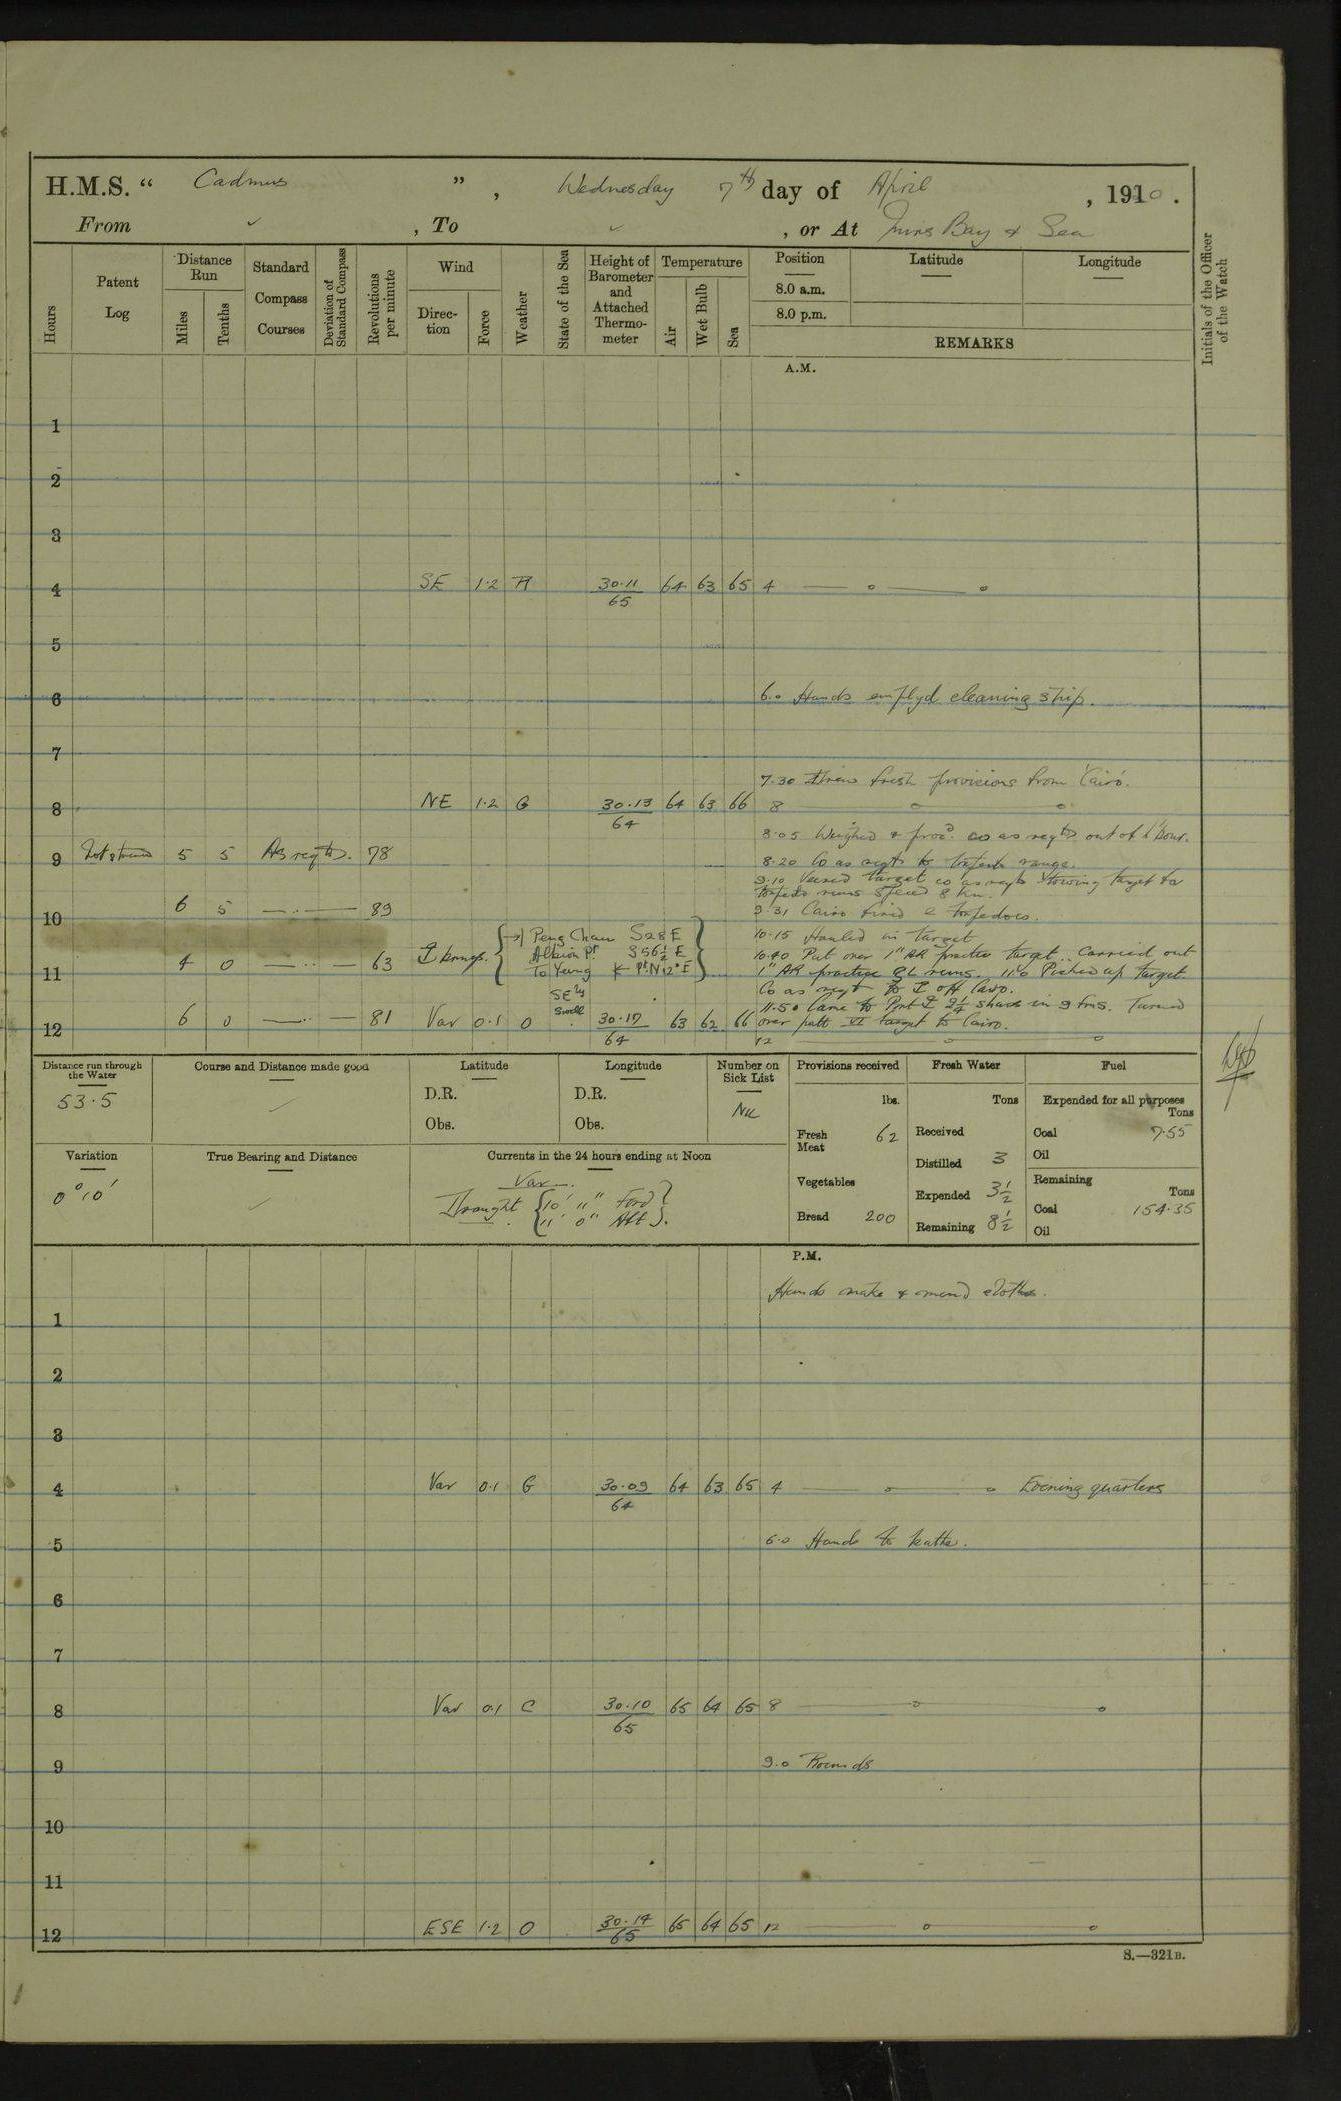 H.M.S. “ Cadmus ” , Wednesday 7th day of April , 1910 .
From ✓ , To ✓ , or At Mirs Bay & Sea
Hours
Patent Log
Distance Run
Miles
Tenths
Standard Compass Courses
Deviation of Standard Compass
Revolutions per minute
Wind
Direction
Force
Weather
State of the Sea
Height of Barometer and Attached Thermometer
Temperature
Air
Wet Bulb
Sea
Position
8.0 a.m.
8.0 p.m.
Latitude
Longitude
REMARKS
Initials of the Officer of the Watch
A.M.
1
2
3
4 SE 1·2 30·11 64 63 65 4
65
5
6 6.0 Hands emplyd cleaning ship.
7
7·30 fresh provisions from Cairo.
8 NE 1·2 G 30·13 64 63 66 8
64
8·05 Weighed & proc. co as reqtd out of Hbour.
9 5 5 As reqtd. 78
8·20 Co as reqts to torpedo range.
9·10 Veered target co as reqts towing target for
torpedo runs speed 8 kn.
10 6 5 — 89
9·31 Cairo fired 2 torpedoes.
10·15 Hauled in target
Peng Chau S28E
Albion Pt S56½E
To Yeung Pt N12°E
10·40 Put over 1" AR practice target. Carried out
11 4 0 — 63
1" AR practice runs. 11.0 Picked up target.
Co as reqt to off Cairo.
SEly Swell
11·50 Came to Port 2¼ shack in 9 fms. Turned
12 6 0 — 81 Var 0·1 O 30·17 63 62 66 over target to Cairo.
64
12
Distance run through the Water
53·5
Course and Distance made good
Latitude
D.R.
Obs.
Longitude
D.R.
Obs.
Number on Sick List
Nil
Provisions received
lbs.
Fresh Meat 62
Vegetables
Bread 200
Fresh Water
Tons
Received
Distilled 3
Expended 3½
Remaining 8½
Fuel
Expended for all purposes
Tons
Coal 7·55
Oil
Remaining
Tons
Coal 154·35
Oil
Variation
0° 10'
True Bearing and Distance
Currents in the 24 hours ending at Noon
Var
Draught { 10' 11" Ford
11' 0" Aft }
P.M.
Hands make & mend clothes.
1
2
3
4 Var 0·1 G 30·09 64 63 65 4 Evening quarters
64
5 Hands to bathe.
6
7
8 Var 0·1 C 30·10 65 64 65 8
65
9 9.0 Rounds
10
11
12 ESE 1·2 O 30·14 65 64 65 12
65
S.—321B.